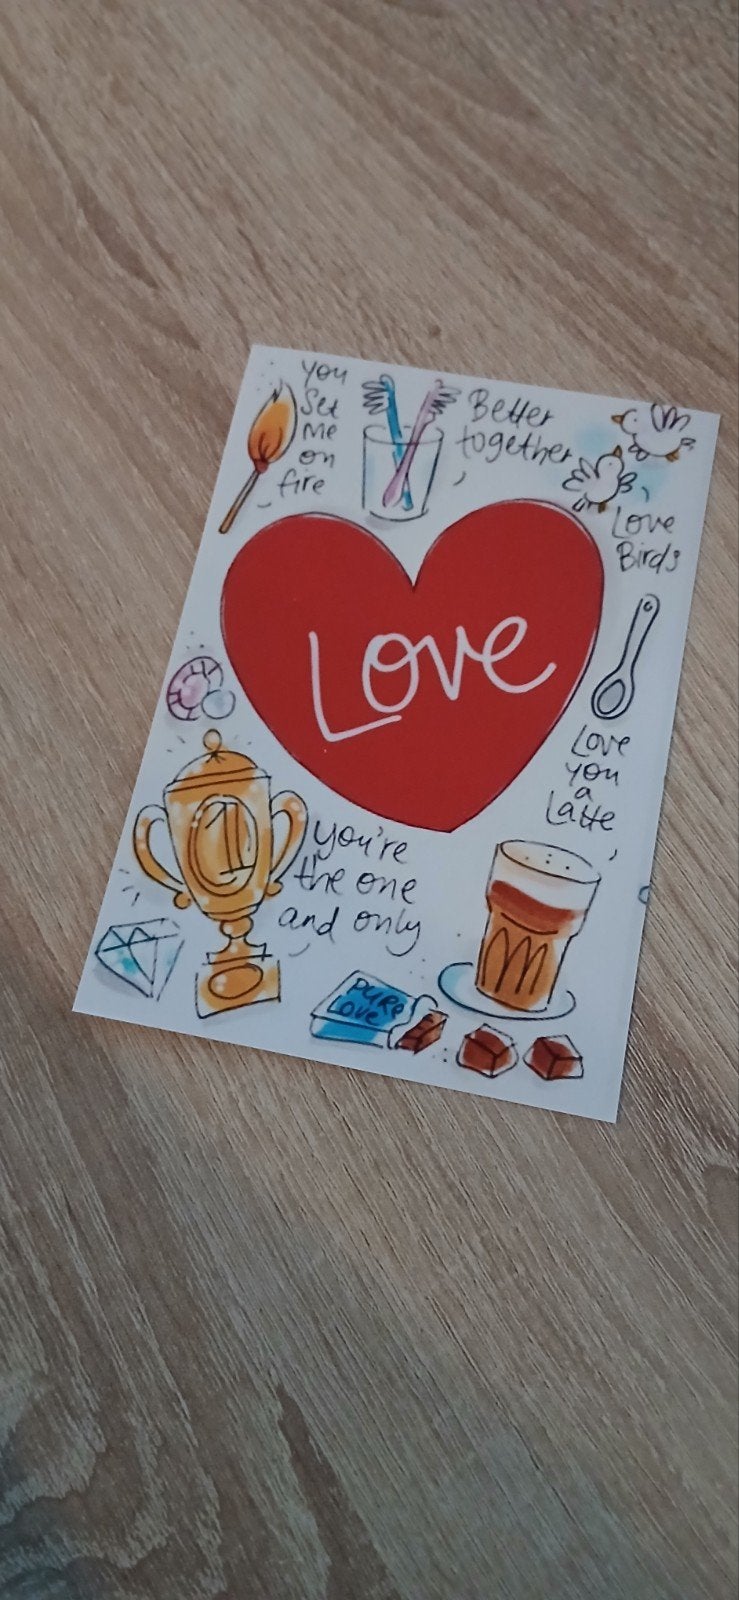 You
Set
me
on
fire
Better
together
Love
Birds
Love
Love
you
a
Latte
1
you're
the one
and only
PURE
LOVE